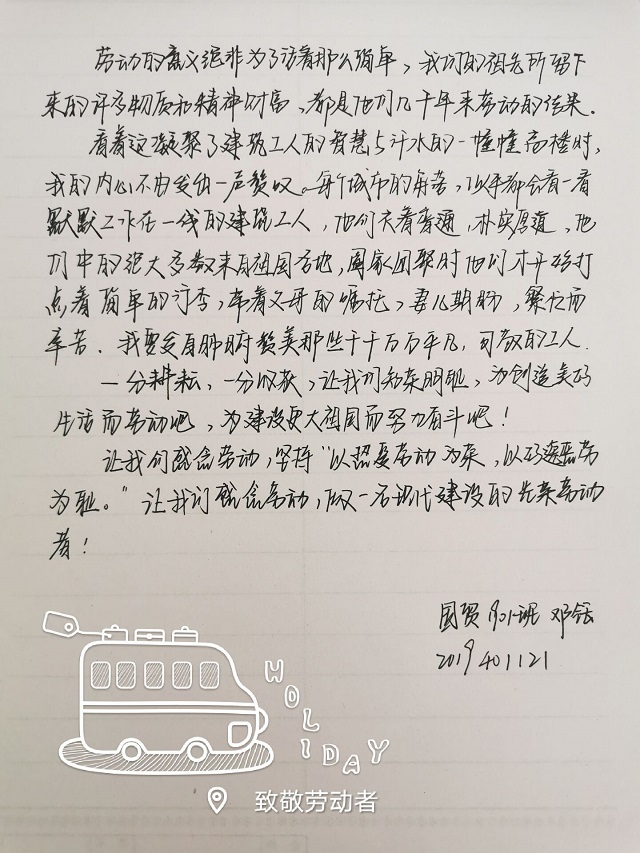 劳动的意义绝非为了活着那么简单，我们的祖先所留下
来的许多物质和精神财富，都是他们几千年来劳动的结果．
看着这凝聚了建筑工人的智慧与汗水的一幢幢高楼时，
我的内心不由发出一声赞叹。每个城市的角落，似乎都会看一看
默默工作在一线的建筑工人，他们大着普通，朴实厚道，他
们中的绝大多数来自祖国各地，阖家团聚时他们才开始打
点着简单的行李，带着父母的嘱托，妻儿期盼，繁忙而
辛苦．我要发自肺腑赞美那些千千万万平凡，可敬的工人．
一分耕耘，一分收获，让我们知荣明耻，为创造美好
生活而劳动吧，为建设更大祖国而努力奋斗吧！
让我们感念劳动，坚持“以热爱劳动为荣，以好逸恶劳
为耻。”让我们感念劳动，做一名现代建设的光荣劳动
者！
国贸1901班 邓钰
2019401121
HOLIDAY
致敬劳动者